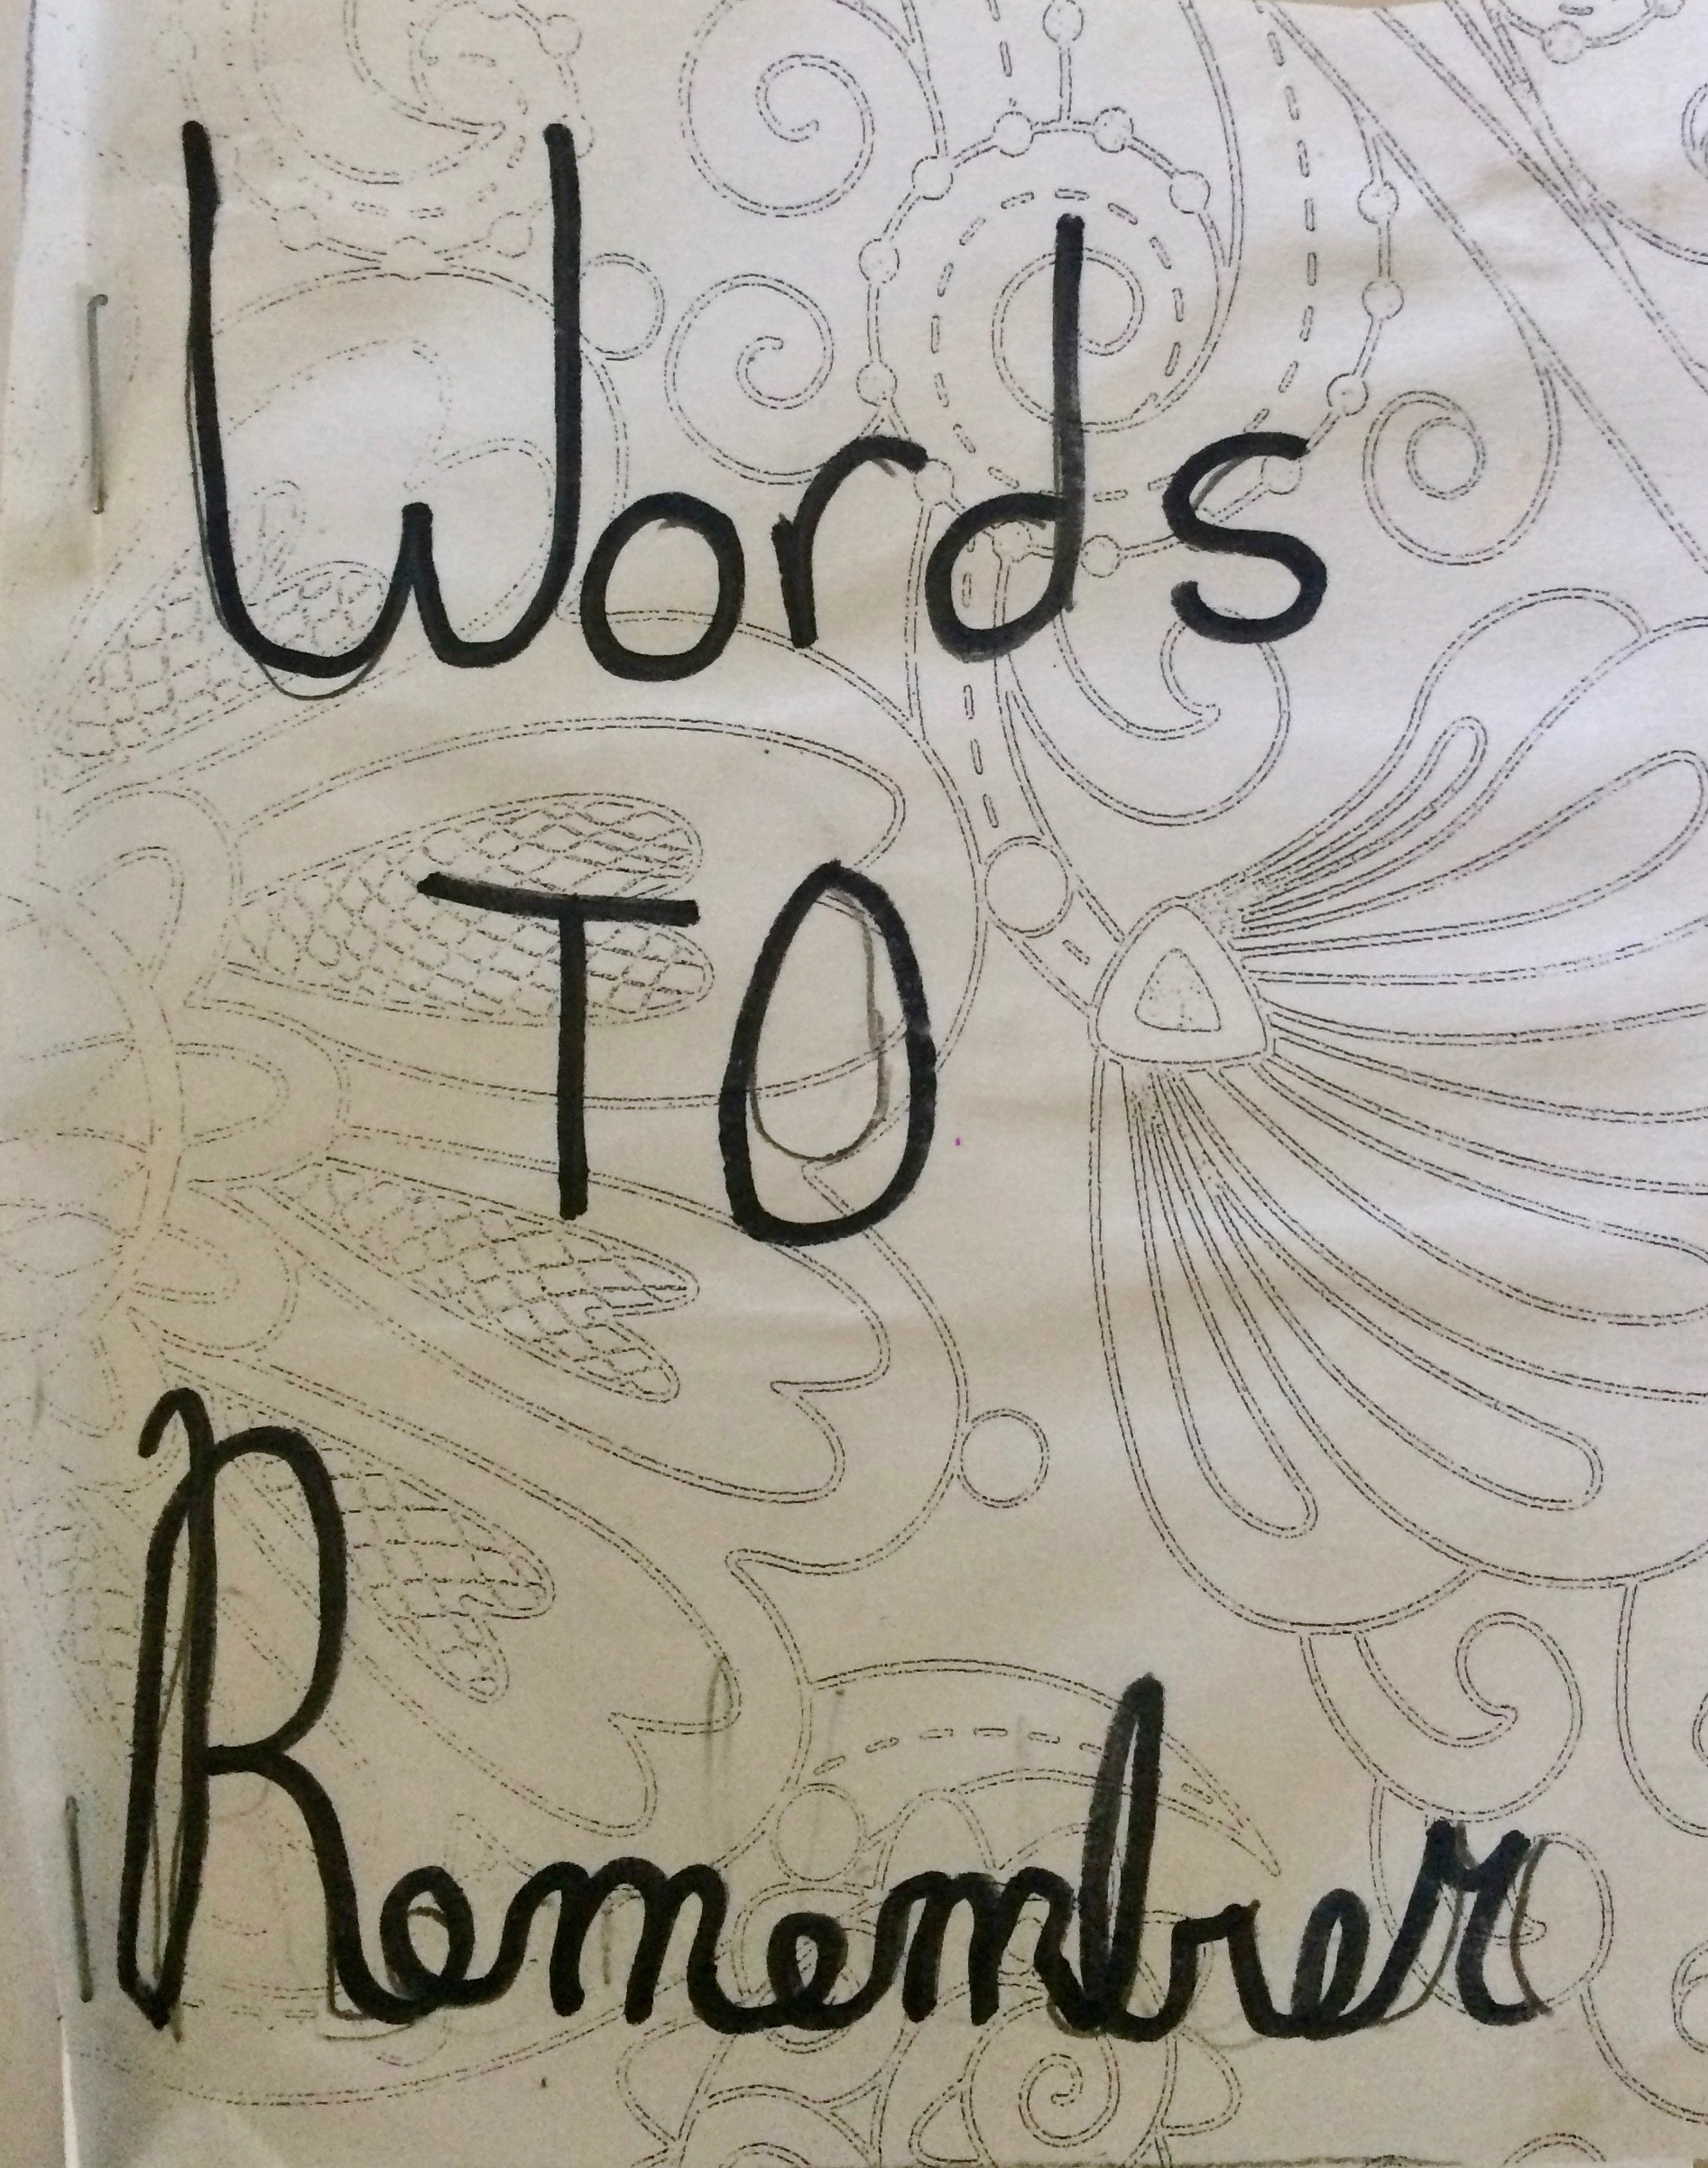 Words
TO
Remember